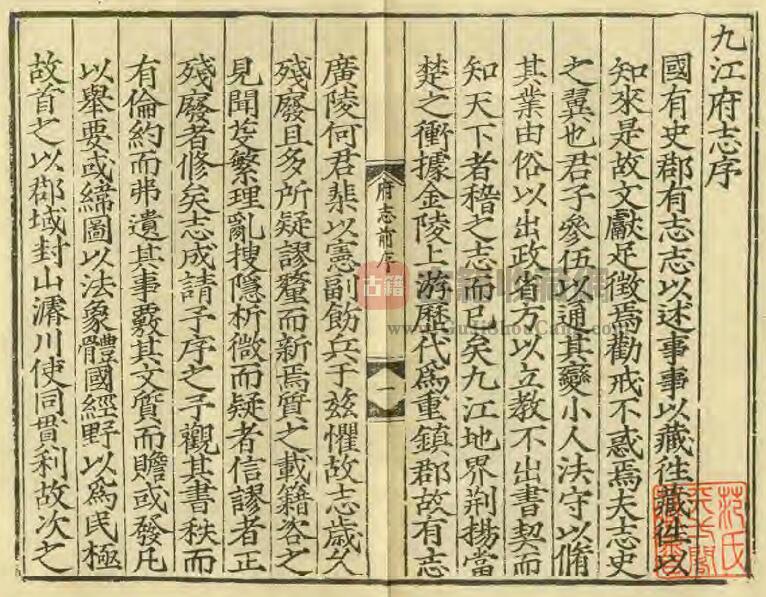 九江府志序
國有史郡有志志以述事事以藏徃藏徃以
知來是故文獻足徵焉勸戒不惑焉夫志史
之翼也君子參伍以通其變小人法守以脩
其業由俗以出政省方以立教不出書契而
知天下者稽之志而已矣九江地界荆揚當
楚之衝據金陵上游歷代爲重鎮郡故有志
府志前序
一
廣陵何君棐以憲副飭兵于兹懼故志歲久
殘廢且多所疑謬釐而新焉質之載籍咨之
見聞芟繁理亂搜隱析微而疑者信謬者正
殘廢者修矣志成請予序之予觀其書秩而
有倫約而弗遺其事覈其文質而贍或發凡
以舉要或締圖以法象體國經野以爲民極
故首之以郡域封山濬川使同貫利故次之
古籍
www.GujiShouCang.com
范氏
天一閣